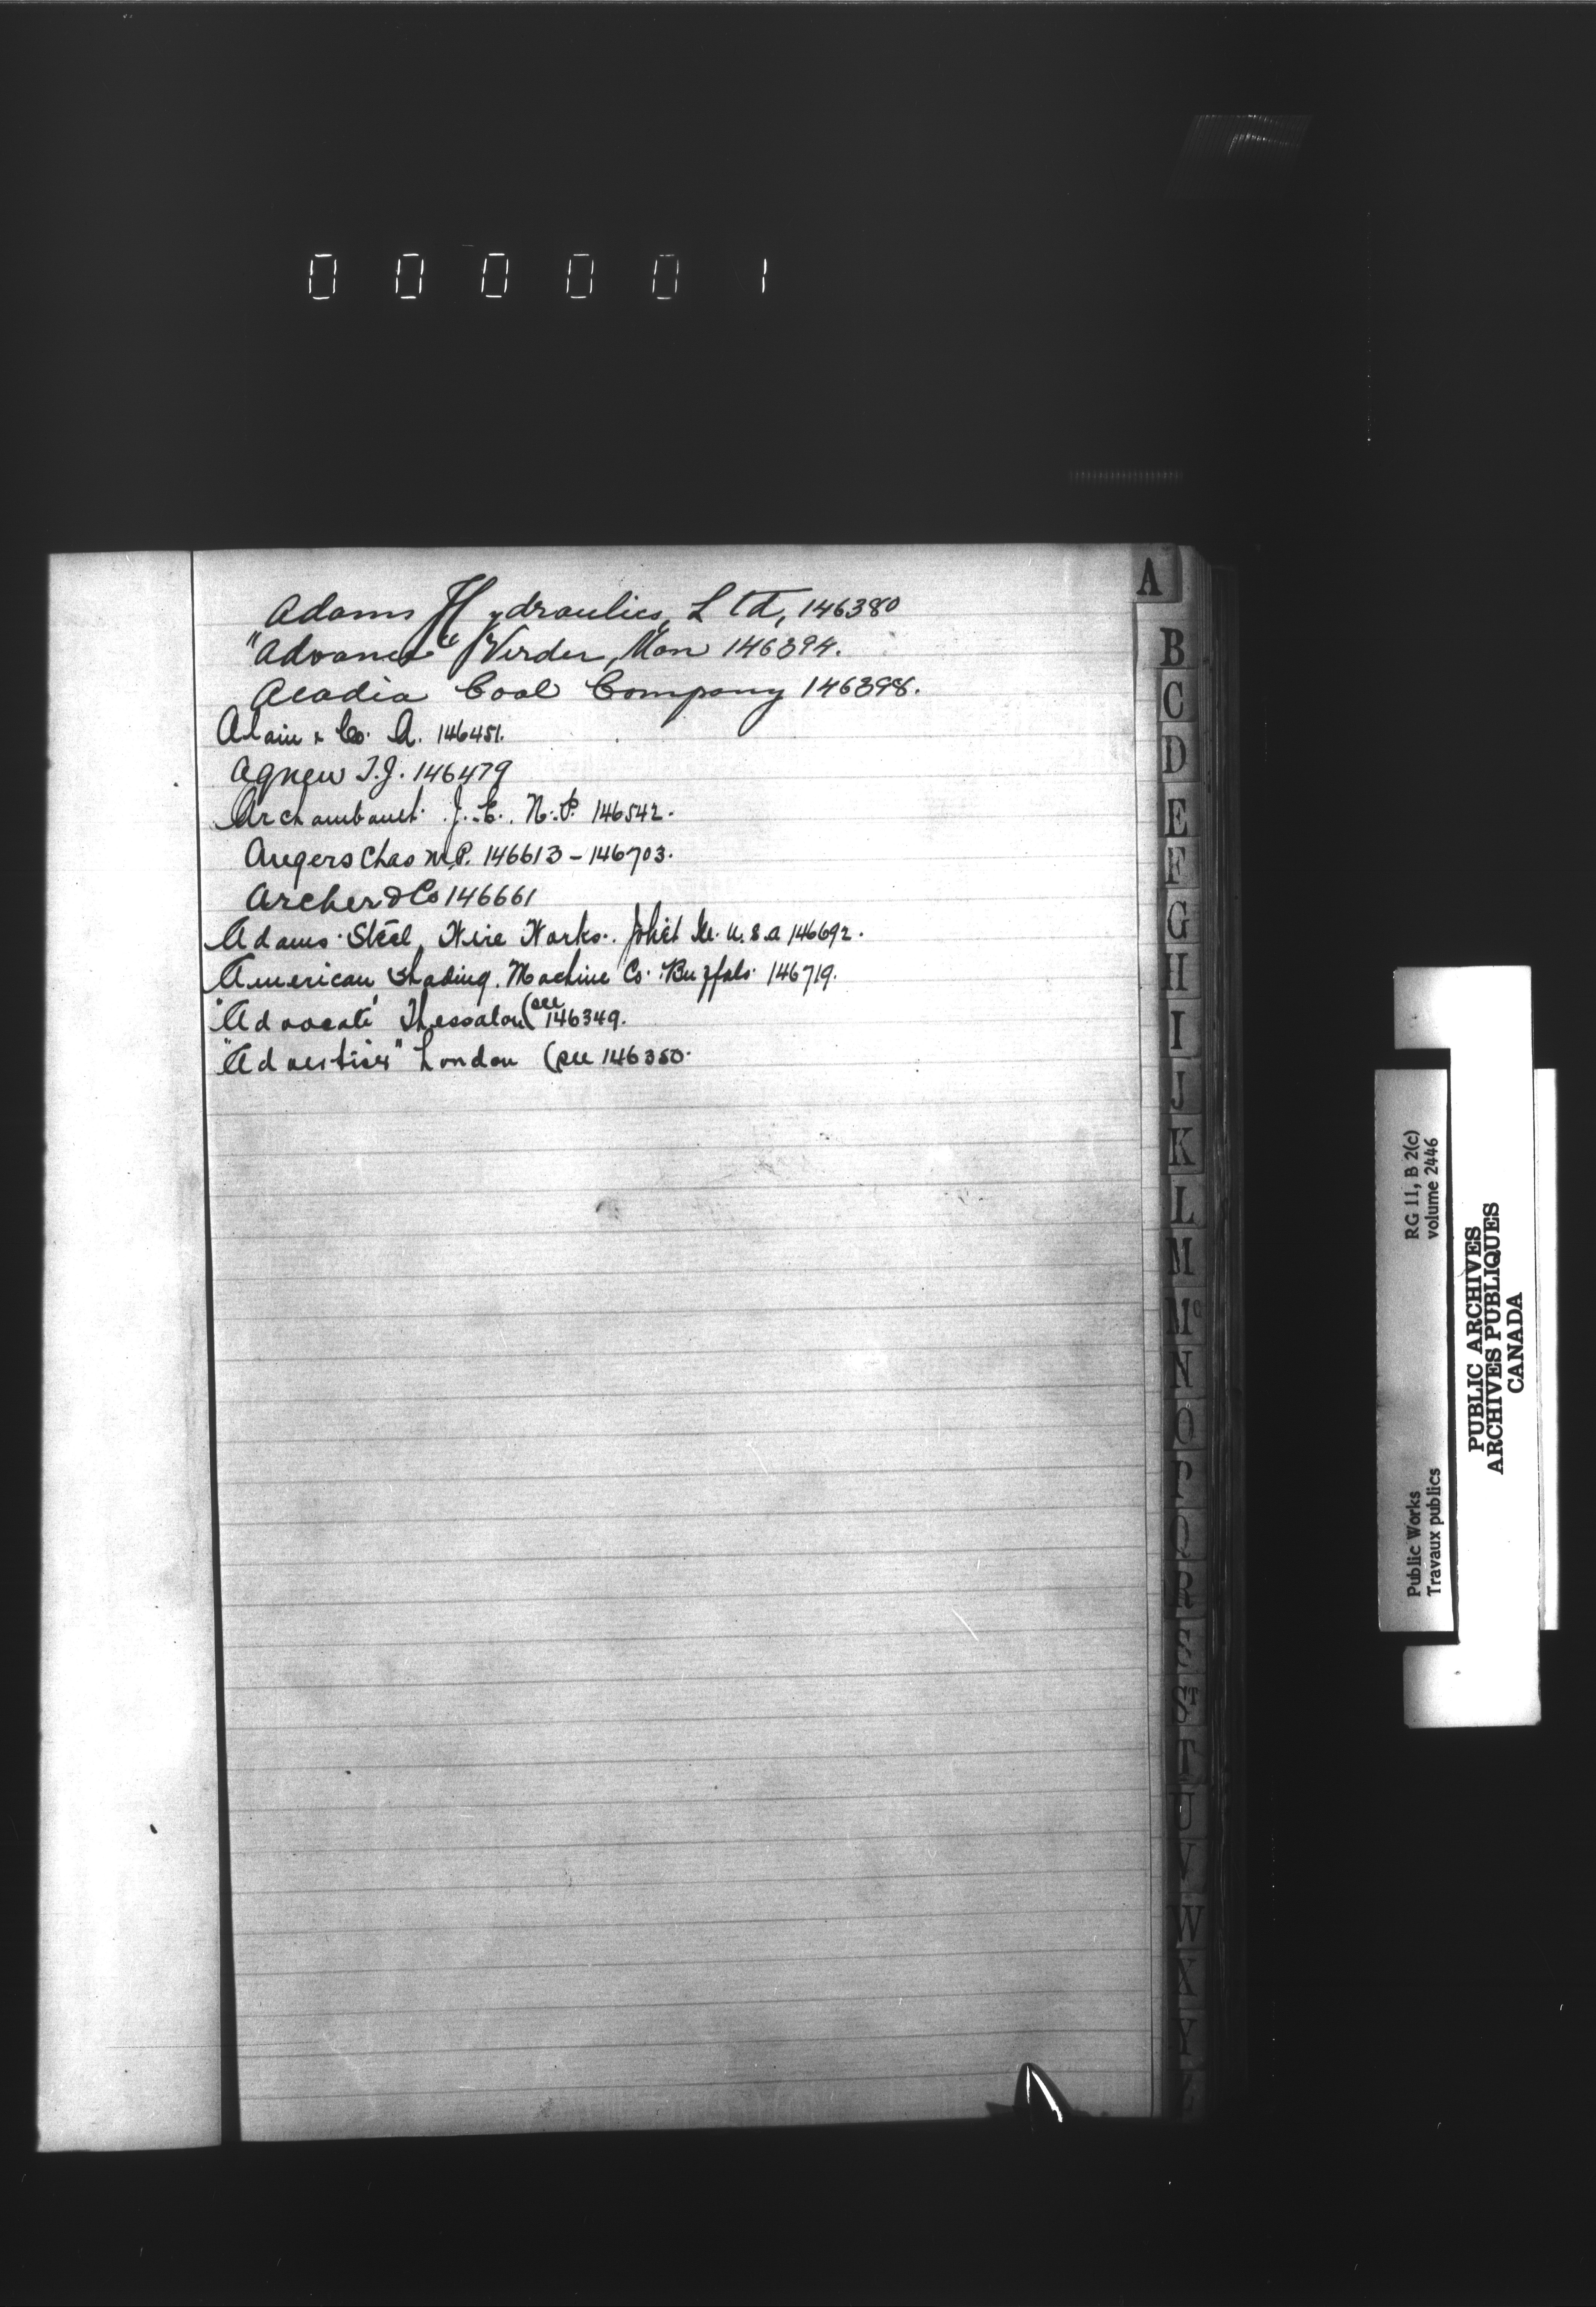 000001
Adams Hydraulics, Ltd, 146380
"Advance" Virden, Man 146394.
Acadia Coal Company 146398.
Alain & Co. A. 146451.
Agnew T.J. 146479
Archambault. J.E. N.P. 146542.
Angers Chas M.P. 146613 - 146703.
Archer & Co 146661
Adams Steel, Wire Works. Joliet Ill. U.S.A 146692.
American Shading Machine Co. Buffalo. 146719.
"Advocate" Thessalon (see 146349.
"Advertiser" London (see 146350.
A
B
C
D
E
F
G
H
I
J
K
L
M
Mc
N
O
P
Q
R
S
ST
T
U
V
W
X
Y
Z
Public Works RG 11, B 2(c)
Travaux publics volume 2446
PUBLIC ARCHIVES
ARCHIVES PUBLIQUES
CANADA